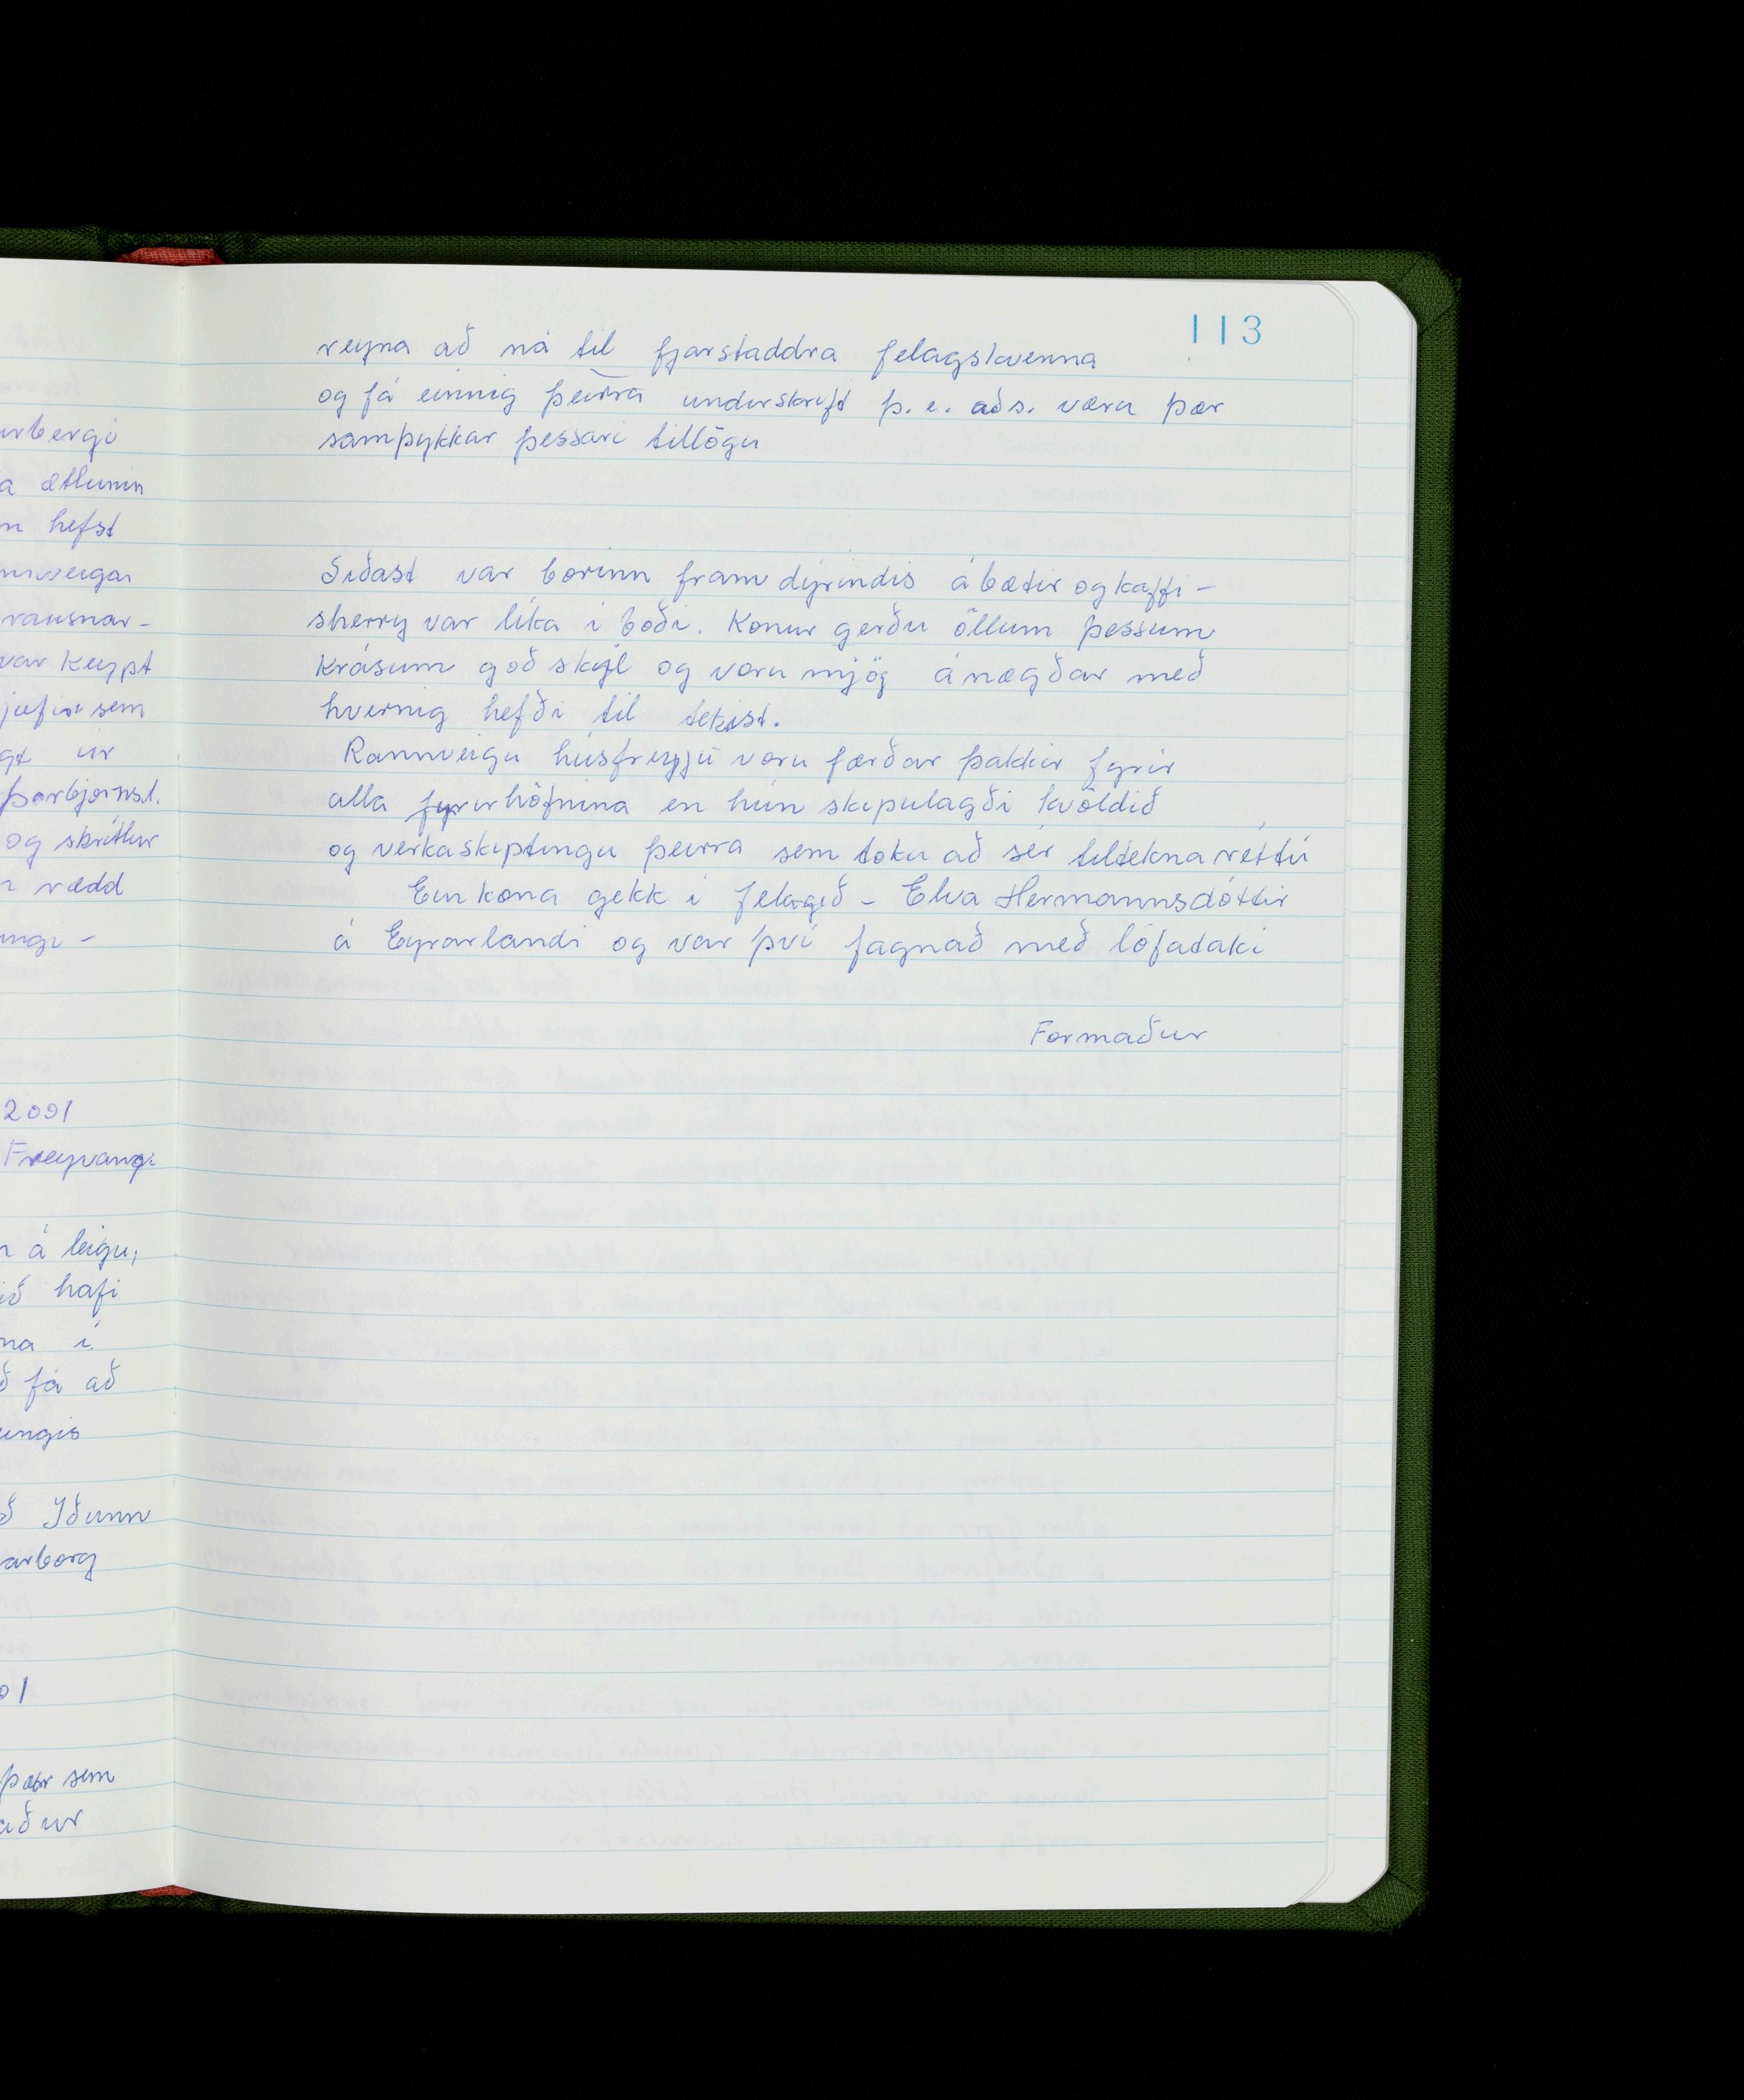 urbergi
a ætlunin
n hefst
nnveigar
rausnar-
var keypt
sem
gt úr
Þorbjörnsd.
og skrítlur
n rædd
ungi -
2001
Freyvangi
n á leigu,
ið hafi
na í
ð fá að
ungis
ð Iðunn
arborg
01
þær sem
aður
113
reyna að ná til fjarstaddra felagskvenna
og fá einnig þeirra underskrift þ.e. aðs. væru þær
samþykkar þessari tillögu
Siðast var borinn fram dýrindis ábætir og kaffi -
sherry var líka í boði. Konur gerðu öllum þessum
krásum goð skýl og voru mjög ánægðar með
hvernig hefði til tekist.
Rannveigu húsfreyju voru færðar þakkir fyrir
alla fyrirhöfnina en hún skipulagði kvöldið
og verkaskiptingu þeirra sem toku að sér tiltekna rétti
Ein kona gekk í felagið - Elva Hermannsdóttir
á Eyrarlandi og var því fagnað með lófataki
Formaður